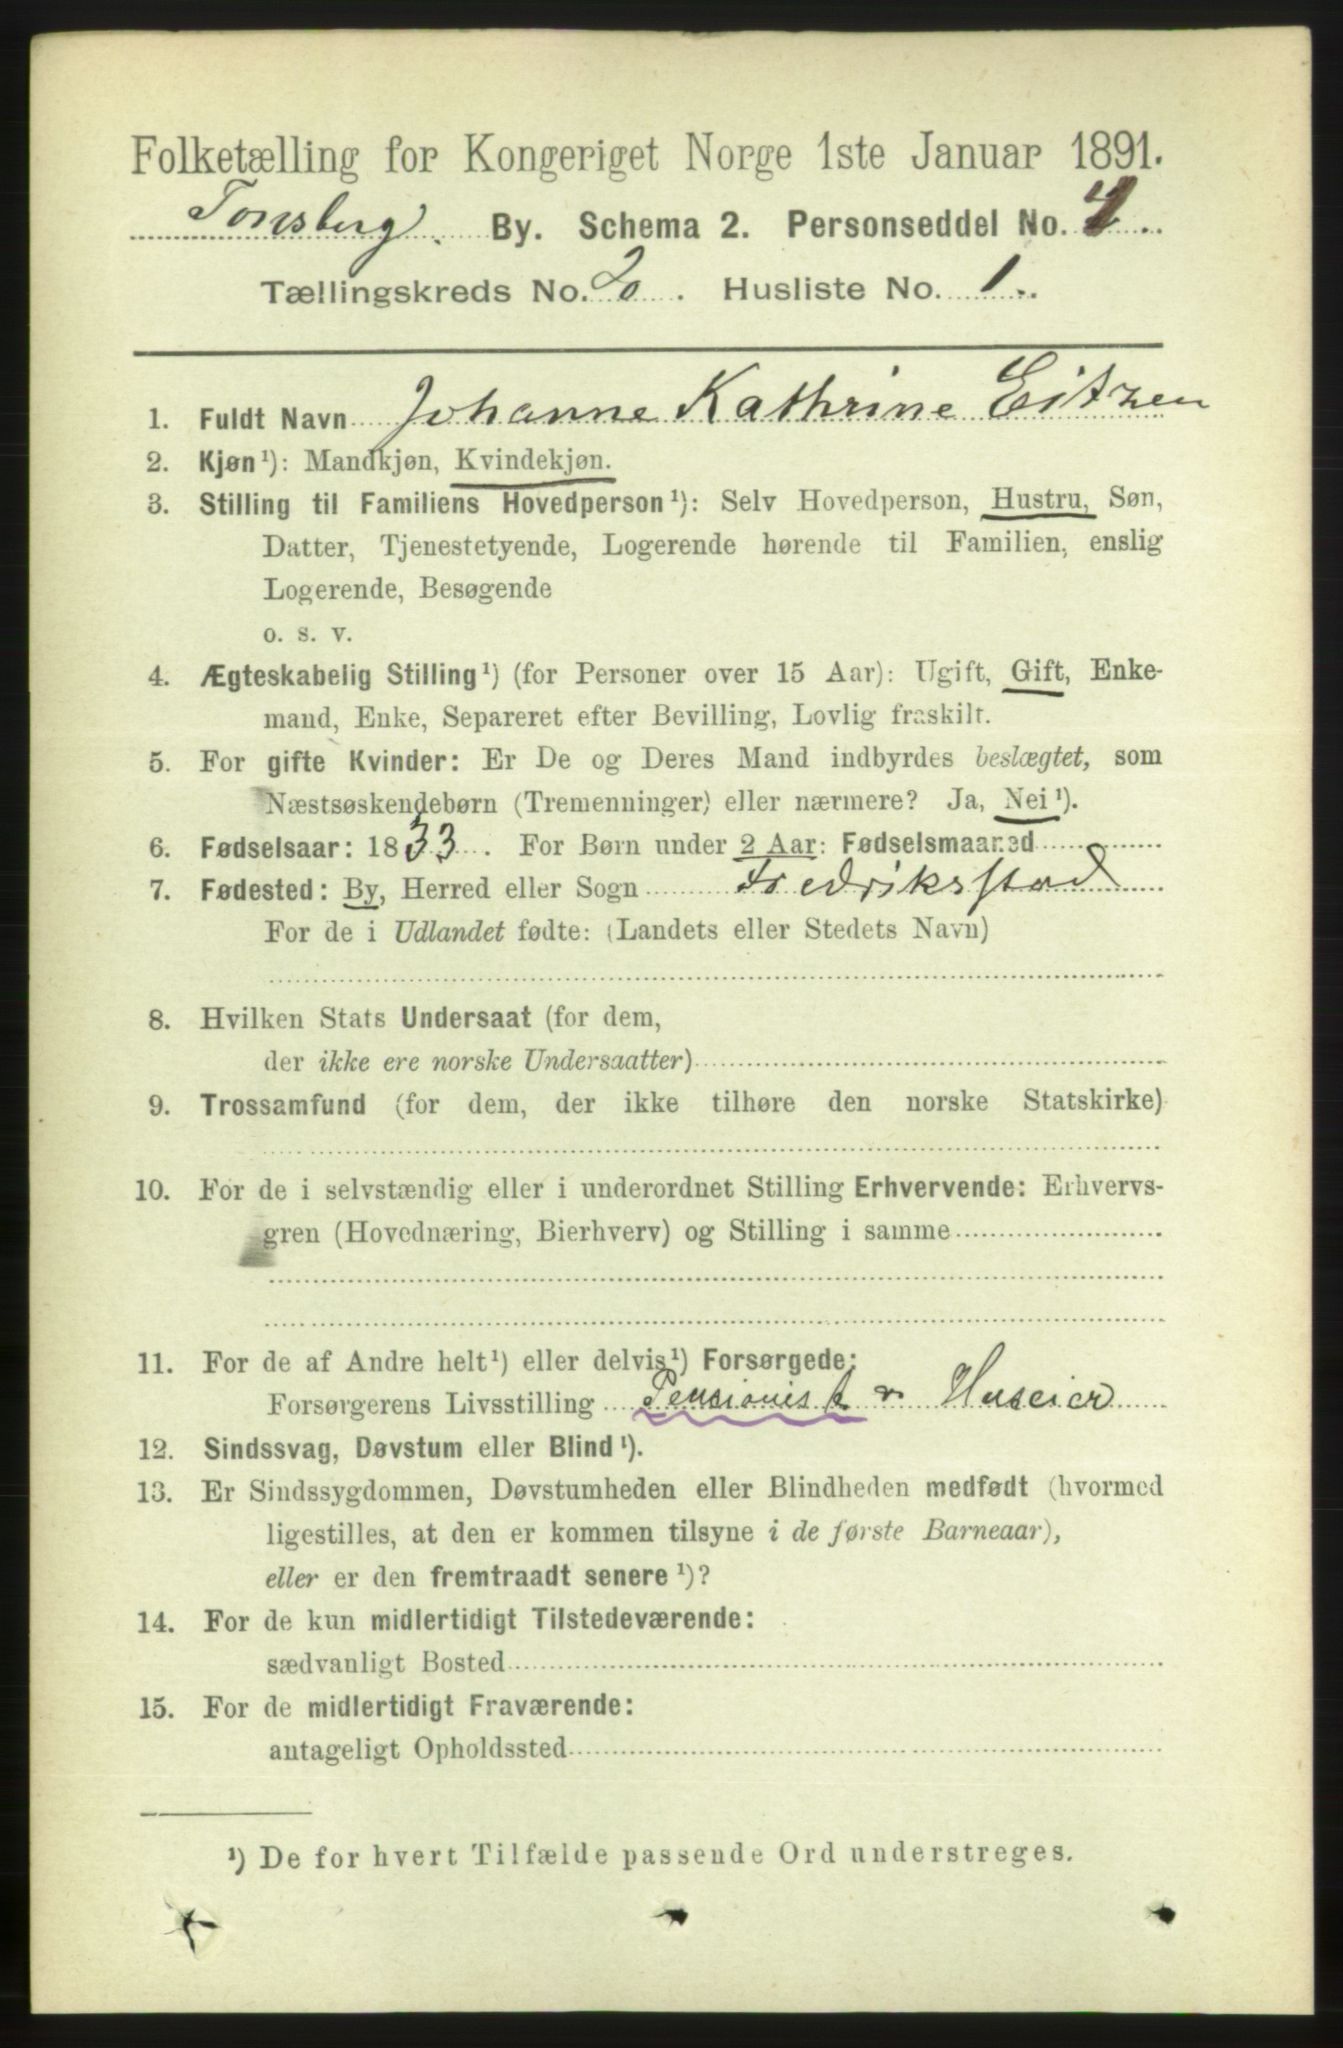 Folketælling for Kongeriget Norge 1ste Januar 1891.
Tonsberg. By. Schema 2. Personseddel No.
Tællingskreds No. 20. Husliste No. 1.
1. Fuldt Navn Johanne Kathrine Eitzen
2. Kjøn¹): Mandkjøn, Kvindekjøn.
3. Stilling til Familiens Hovedperson¹): Selv Hovedperson, Hustru, Søn,
Datter, Tjenestetyende, Logerende hørende til Familien, enslig
Logerende, Besøgende
o. s. v.
4. Ægteskabelig Stilling¹) (for Personer over 15 Aar): Ugift, Gift, Enke-
mand, Enke, Separeret efter Bevilling, Lovlig fraskilt.
5. For gifte Kvinder: Er De og Deres Mand indbyrdes beslægtet, som
Næstsøskendebørn (Tremenninger) eller nærmere? Ja, Nei¹).
6. Fødselsaar: 1833. For Børn under 2 Aar: Fødselsmaaned
7. Fødested: By, Herred eller Sogn Fredriksstad
For de i Udlandet fødte: (Landets eller Stedets Navn)
8. Hvilken Stats Undersaat (for dem,
der ikke ere norske Undersaatter)
9. Trossamfund (for dem, der ikke tilhøre den norske Statskirke)
10. For de i selvstændig eller i underordnet Stilling Erhvervende: Erhvervs-
gren (Hovednæring, Bierhverv) og Stilling i samme
11. For de af Andre helt¹) eller delvis¹) Forsørgede:
Forsørgerens Livsstilling Pensionist Huseier
12. Sindssvag, Døvstum eller Blind¹).
13. Er Sindssygdommen, Døvstumheden eller Blindheden medfødt (hvormed
ligestilles, at den er kommen tilsyne i de første Barneaar),
eller er den fremtraadt senere¹)?
14. For de kun midlertidigt Tilstedeværende:
sædvanligt Bosted
15. For de midlertidigt Fraværende:
antageligt Opholdssted
¹) De for hvert Tilfælde passende Ord understreges.